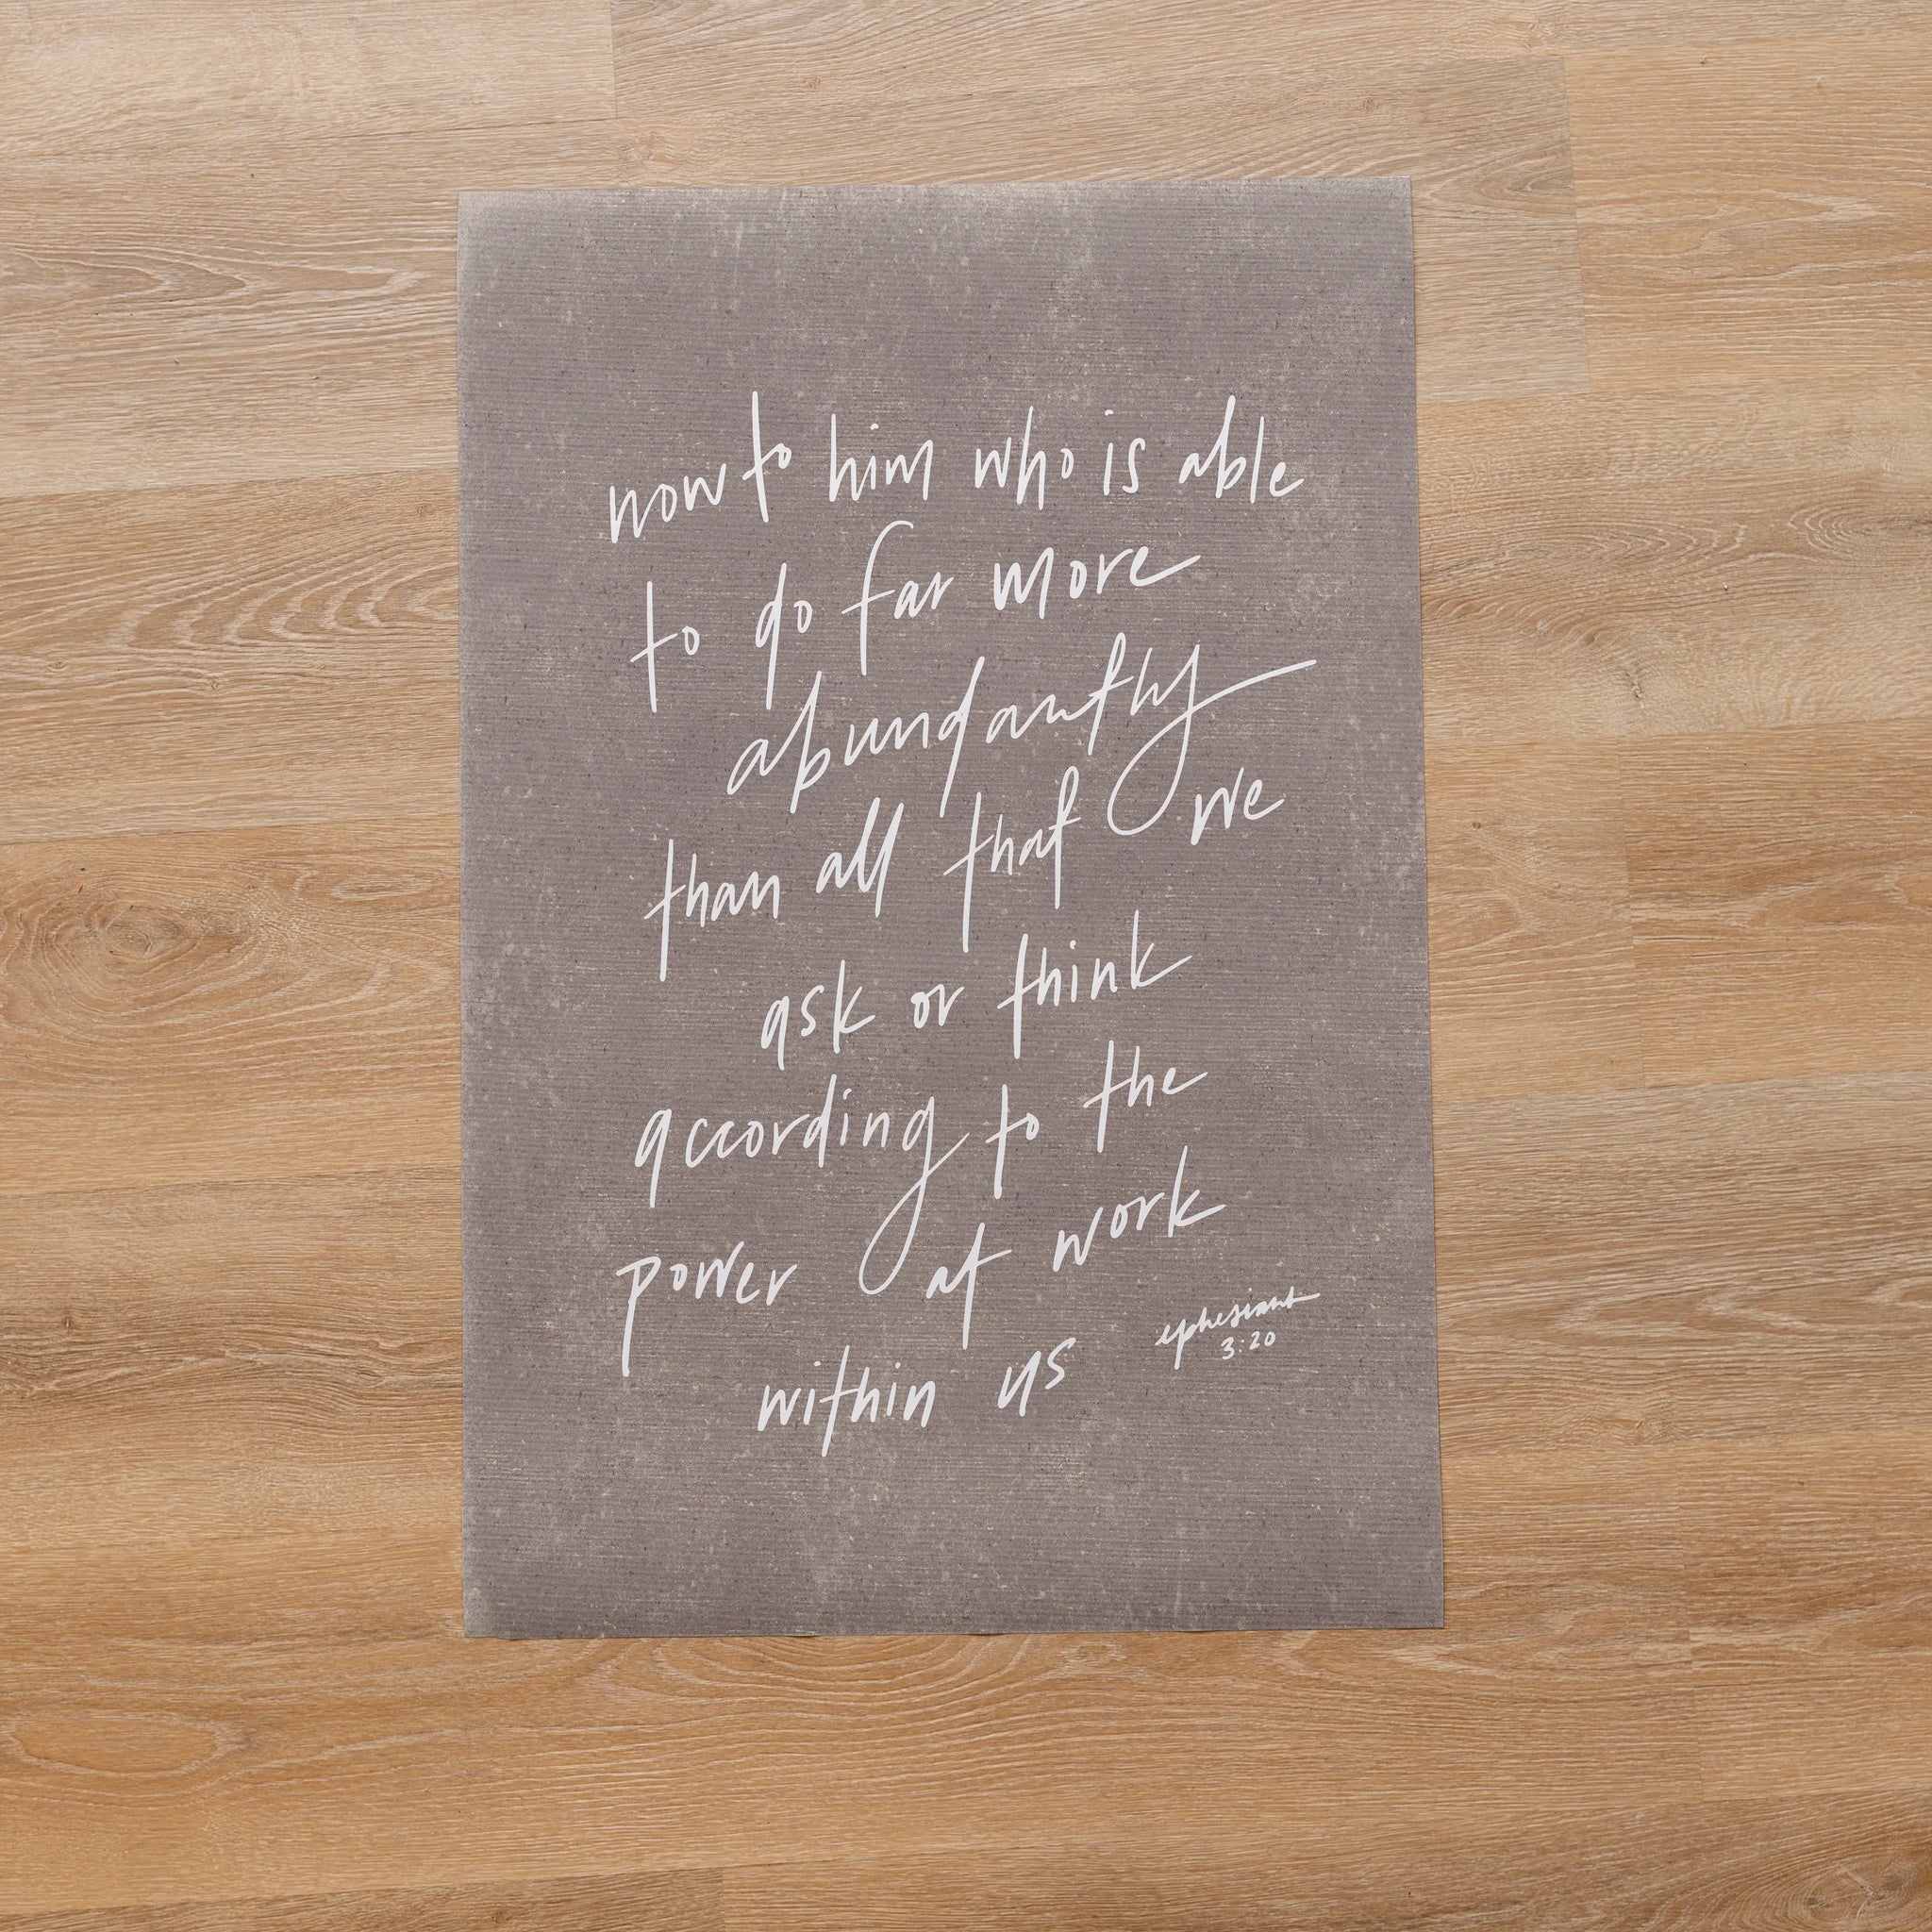 now to him who is able
to do far more
abundantly
than all that we
ask or think
according to the
power at work
within us
ephesians
3:20